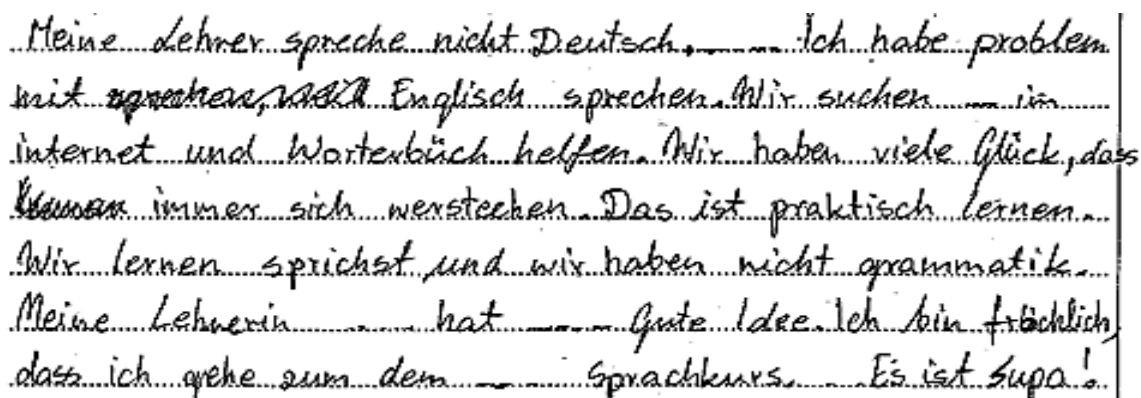 Meine Lehrer spreche nicht Deutsch. Ich habe problem
mit Englisch sprechen. Wir suchen im
internet und Worterbüch helfen. Wir haben viele Glück, dass
immer sich werstechen. Das ist praktisch lernen.
Wir lernen sprichst und wir haben nicht grammatik.
Meine Lehrerin hat gute Idee. Ich bin fröchlich,
dass ich gehe zum dem Sprachkurs. Es ist Supa!